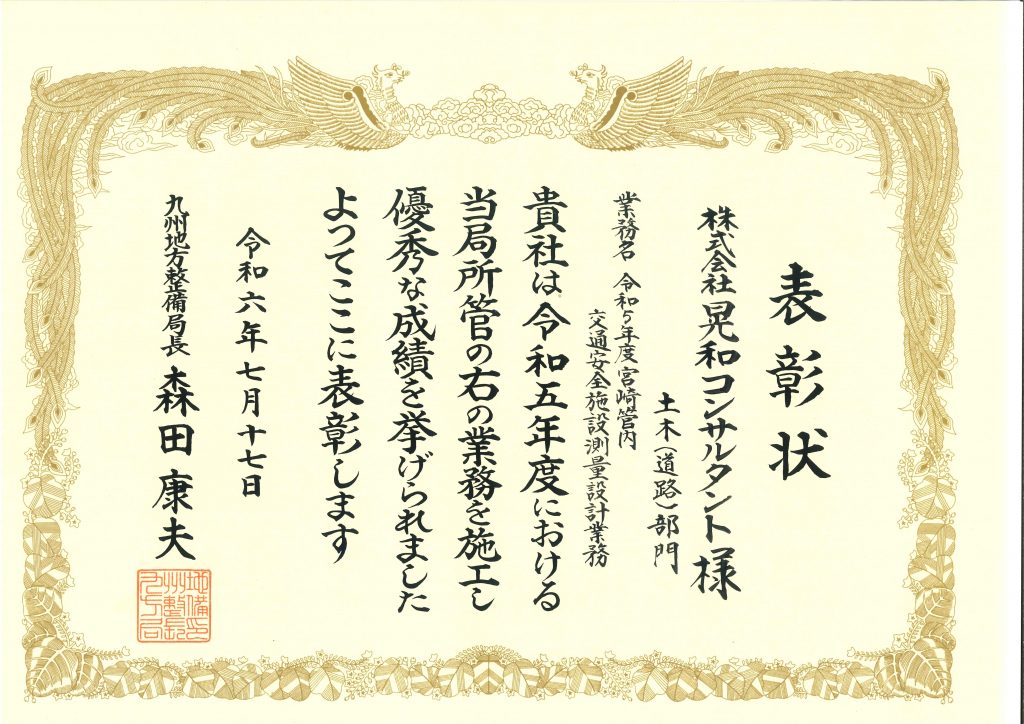 表彰状
株式会社晃和コンサルタント様
土木(道路)部門
業務名 令和5年度宮崎管内
交通安全施設測量設計業務
貴社は令和五年度における
当局所管の右の業務を施工し
優秀な成績を挙げられました
よつてここに表彰します
令和六年七月十七日
九州地方整備局長 森田康夫